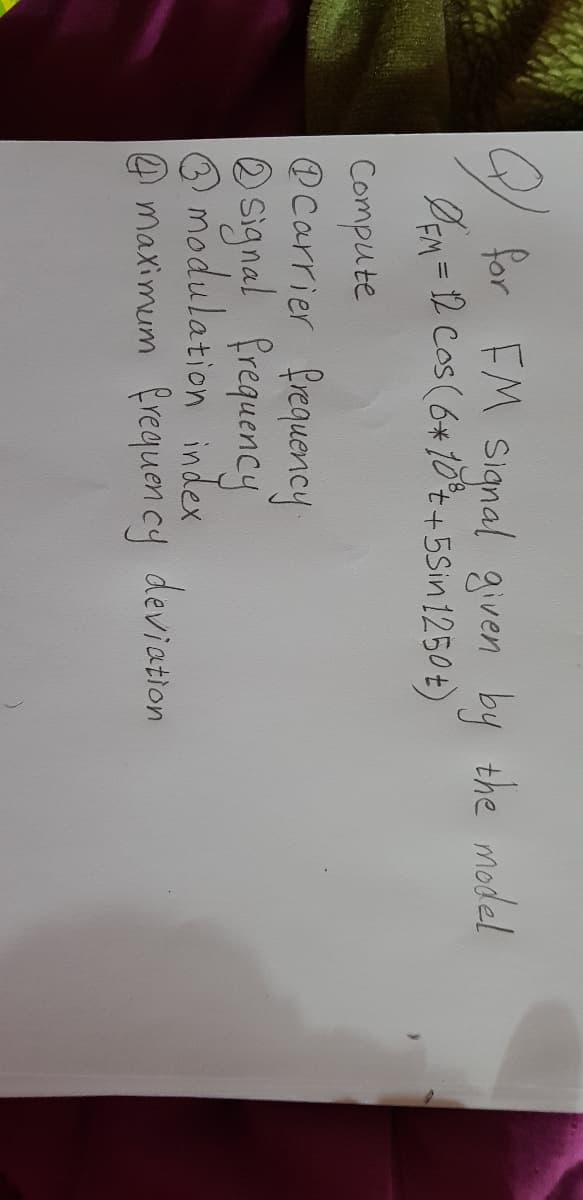 Q/ for FM Signal given by the model
ØFM = 12 cos(6*10⁸t+5Sin1250t)
Compute
① Carrier frequency
② Signal frequency
③ modulation index
④ maximum frequency deviation